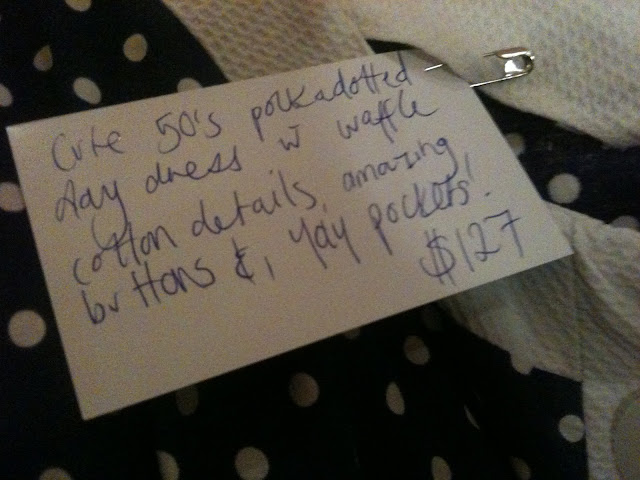 Cute 50's polkadotted
day dress w waffle
cotton details, amazing
buttons &, yay pockets!
$127